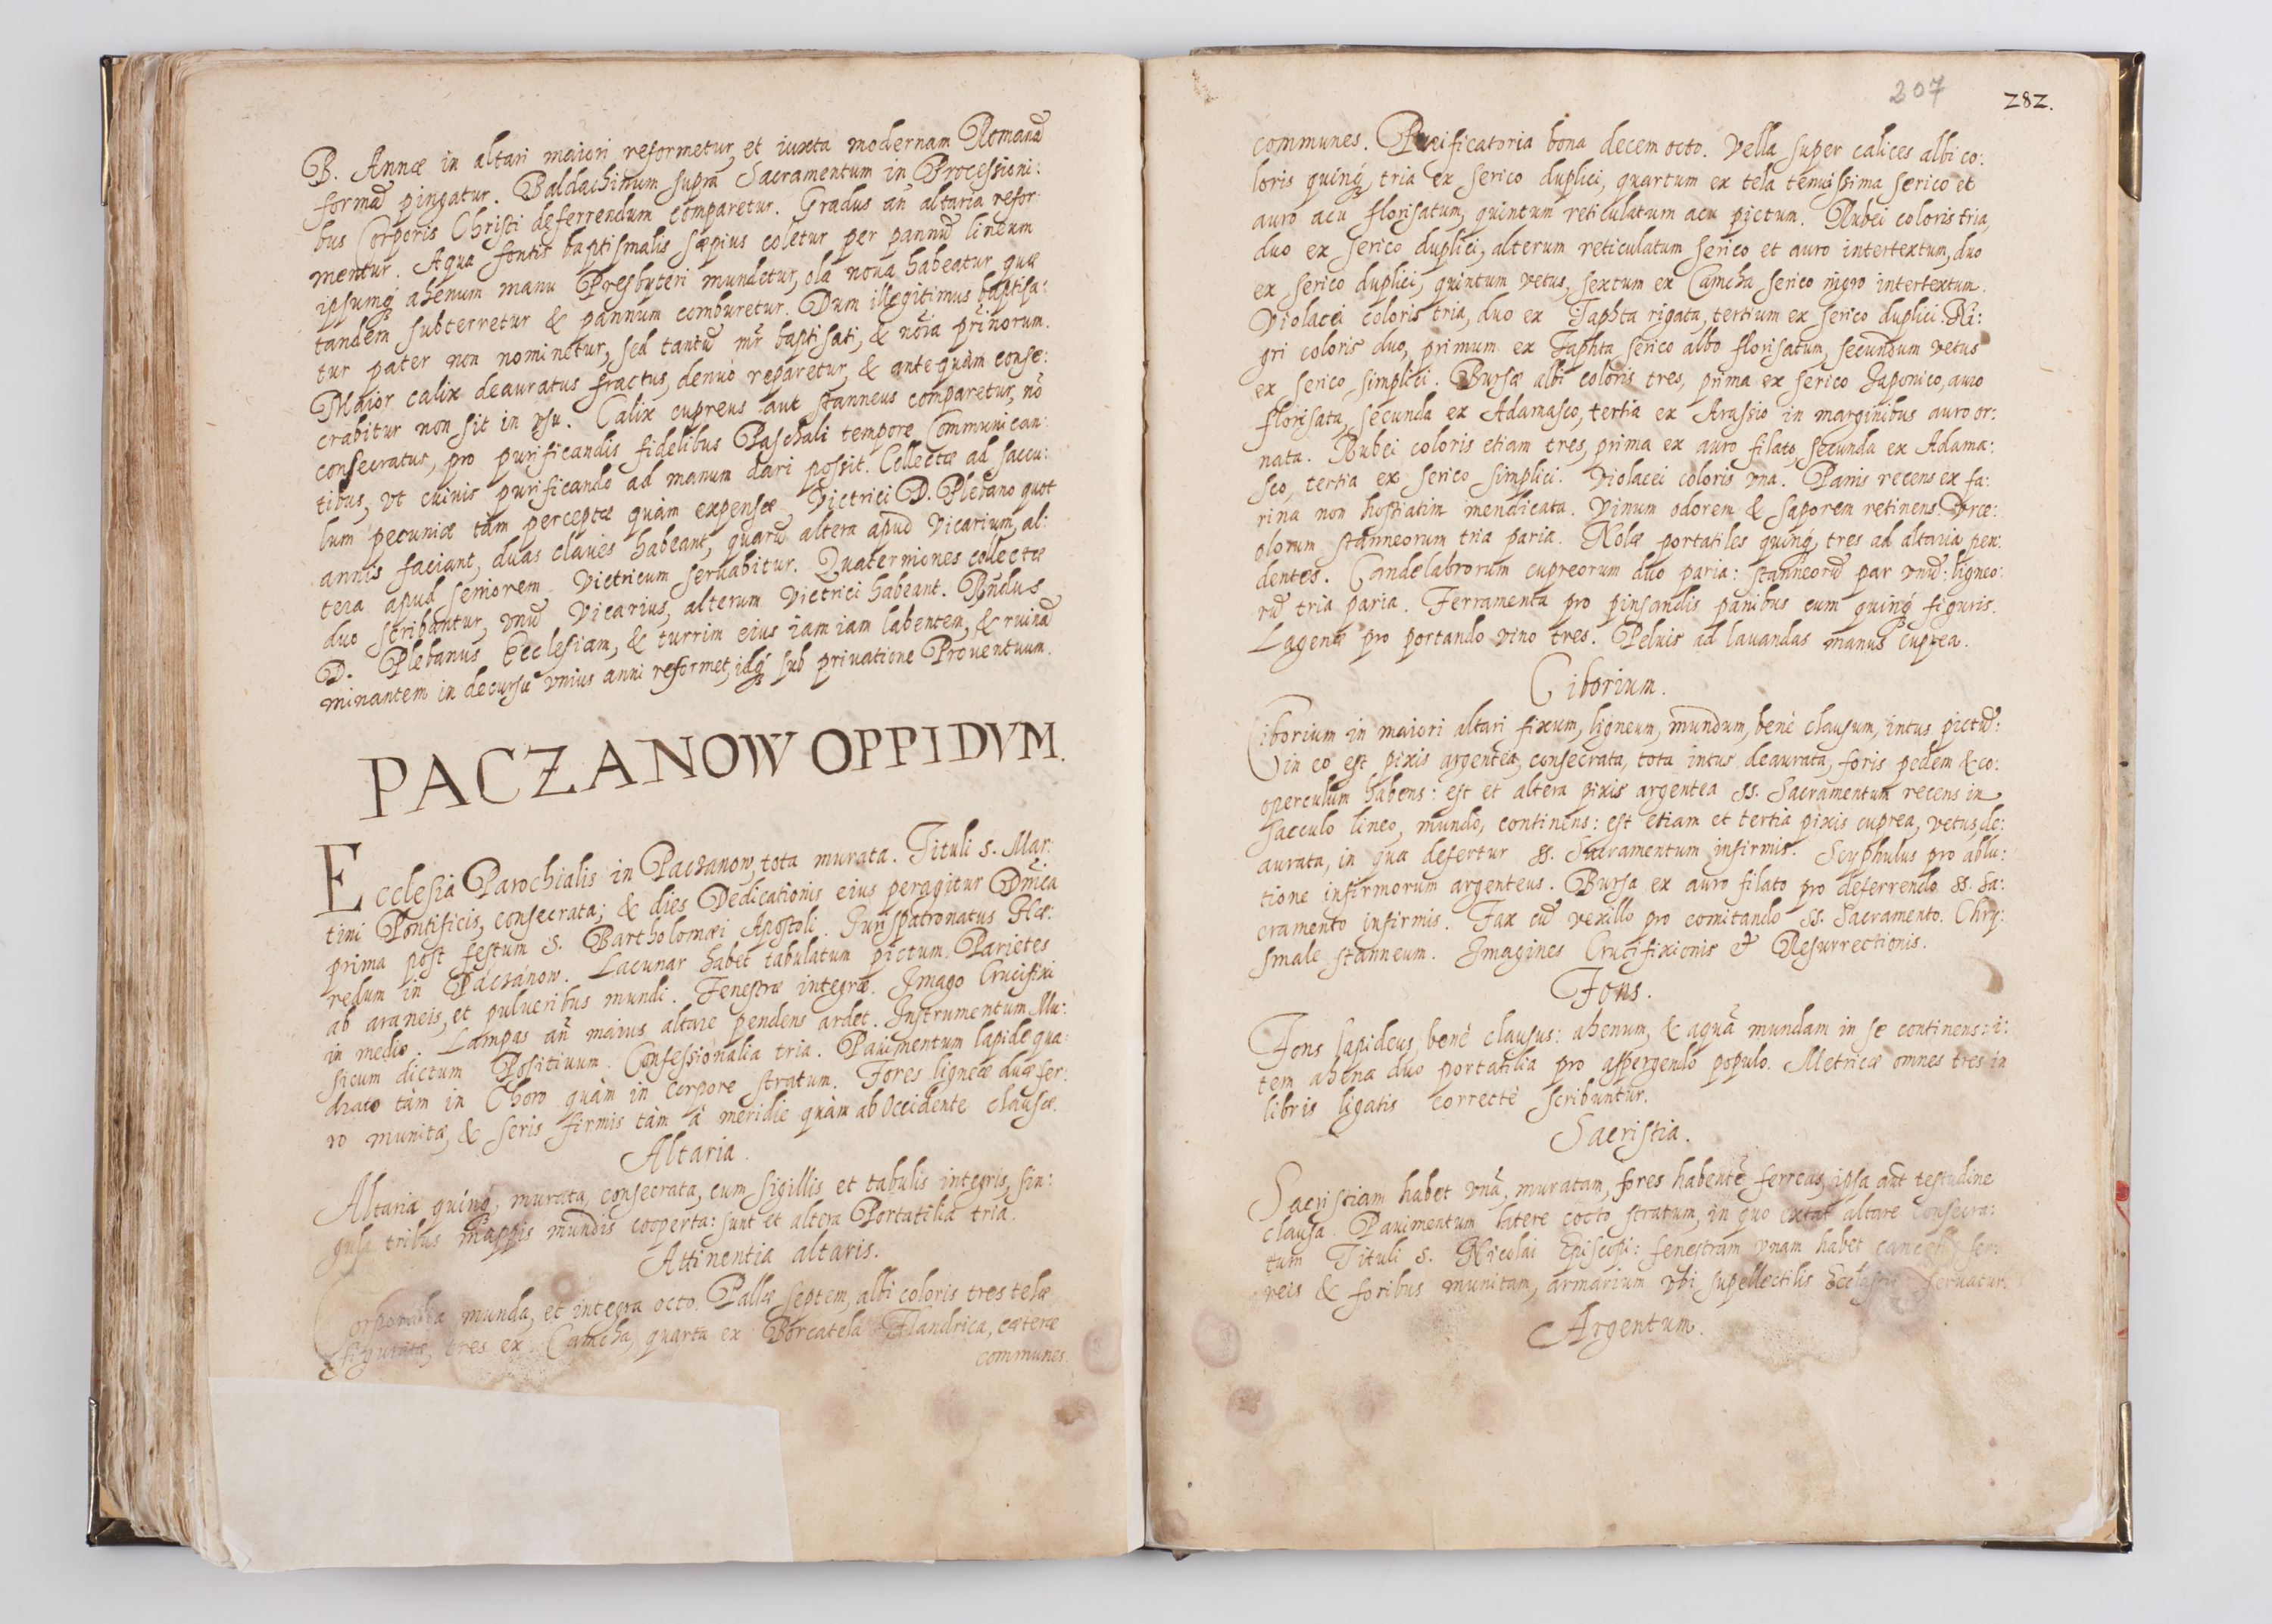 B. Annæ in altari maiori reformetur, et iuxta modernam Romanã
formã pingatur. Baldachinum supra Sacramentum in Processioni:
bus Corporis Christi deferrendum comparetur. Gradus añ altaria refor:
mentur. Aqua fontis baptismalis sæpius coletur per pannũ lineum
ipsumq́ ahenum manu Presbyteri mundetur, ola noua habeatur quæ
tandem subterretur & pannum comburetur. Dum illegitimus baptisa:
tur pater non nominetur, sed tantũ mr̃ baptisati, & nõia prĩnorum.
Maior calix deauratus fractus, denuò reparetur, & antequàm conse:
crabitur non sit in vsu. Calix cupreus aut stanneus comparetur, nõ
consecratus, pro purificandis fidelibus Paschali tempore Communican:
tibus, vt cuiuis purificando ad manum dari possit. Collectæ ad saccu:
lum pecuniæ tàm perceptæ quàm expensæ, Victrici D. Plebano quot
annis faciant, duas claues habeant, quarũ altera apud Vicarium, al:
tera apud seniorem Victricum seruabitur. Quaterniones collectæ
duo scribantur, vnũ Vicarius, alterum Victrici habeant. Rñdus
D. Plebanus Ecclesiam, & turrim eius iam iam labentem, & ruinã
minantem in decursu vnius anni reformet, idq́ sub priuatione Prouentuum.
PACZANOW OPPIDVM.
Ecclesia Parochialis in Paczanow, tota murata. Tituli S. Mar:
tini Pontificis, consecrata; & dies Dedicationis eius peragitur Dñica
prima post festum S. Bartholomæi Apostoli. Jurispatronatus Hæ:
redum in Páczánow. Lacunar habet tabulatum pictum. Parietes
ab araneis, et pulueribus mundi. Fenestræ integræ. Imago Crucifixi
in medio. Lampas añ maius altare pendens ardet. Instrumentum Mu:
sicum dictum Positiuum. Confessionalia tria. Pauimentum lapide qua:
drato tàm in Choro quàm in corpore stratum. Fores ligneæ duæ fer:
ro munitæ, & seris firmis tàm à meridie quàm ab Occidente clausæ.
Altaria.
Altaria quinq́, murata, consecrata, cum sigillis et tabulis integris, sin:
gula tribus mappis mundis cooperta: sunt et altera Portatilia tria.
Attinentia altaris.
Corporalia munda, et integra octo. Pallæ septem, albi coloris tres telæ
figuratæ, tres ex Camcha, quarta ex Borcatela Flandrica, cæteræ
communes
207
282.
communes. Purificatoria bona decem octo. Vella super calices albi co:
loris quinq́, tria ex serico duplici, quartum ex tela tenuissima serico et
auro acu florisatum, quintum reticulatum acu pictum. Rubei coloris tria,
duo ex serico duplici, alterum reticulatum serico et auro intertextum, duo
ex serico duplici, quintum vetus, sextum ex Camcha serico nigro intertextum.
Violacei coloris tria, duo ex Taphta rigata, tertium ex serico duplici. Ni:
gri coloris duo, primum ex Taphta serico albo florisatum, secundum vetus
ex serico simplici. Bursæ albi coloris tres, prima ex serico Japonico, auro
florisata, secunda ex Adamasco, tertia ex Arassio in marginibus auro or:
nata. Rubei coloris etiam tres, prima ex auro filato, secunda ex Adama:
sco, tertia ex serico simplici. Violacei coloris vna. Panis recens ex fa:
rina non hostiatim mendicata. Vinum odorem & saporem retinens. Vrce:
olorum stanneorum tria paria. Nolæ portatiles quinq́, tres ad altaria pen:
dentes. Candelabrorum cupreorum duo paria: stanneorũ par vnũ: ligneo:
rũ tria paria. Ferramenta pro pinsandis panibus cum quinq́ figuris.
Lagenæ pro portando vino tres. Peluis ad lauandas manus cuprea.
Ciborium.
Ciborium in maiori altari fixum, ligneum, mundum, benè clausum, intus pictũ:
in eo est pixis argentea, consecrata, tota intus deaurata, foris pedem & co:
operculum habens: est et altera pixis argentea SS. Sacramentum recens in
sacculo lineo, mundo, continens: est etiam et tertia pixis cuprea, vetus, de:
aurata, in qua defertur SS. Sacramentum infirmis. Scyphulus pro ablu:
tione infirmorum argenteus. Bursa ex auro filato pro deferrendo SS. Sa:
cramento infirmis. Fax cũ vexillo pro comitando SS. Sacramento. Chry:
smale stanneum. Imagines Crucifixionis & Resurrectionis.
Fons.
Fons lapideus, benè clausus: ahenum, & aquã mundam in se continens: i:
tem ahena duo portatilia pro aspergendo populo. Metricæ omnes tres in
libris ligatis correctè scribuntur.
Sacristia.
Sacristiam habet vnã, muratam, fores habentẽ ferreas, ipsa aũt testudine
clausa. Pauimentum latere cocto stratum, in quo extat altare consecra:
tum Tituli S. Nicolai Episcopi: fenestram vnam habet cancellis fer:
reis & foribus munitam, armarium vbi supellectilis Ecclesiæ seruatur.
Argentum.